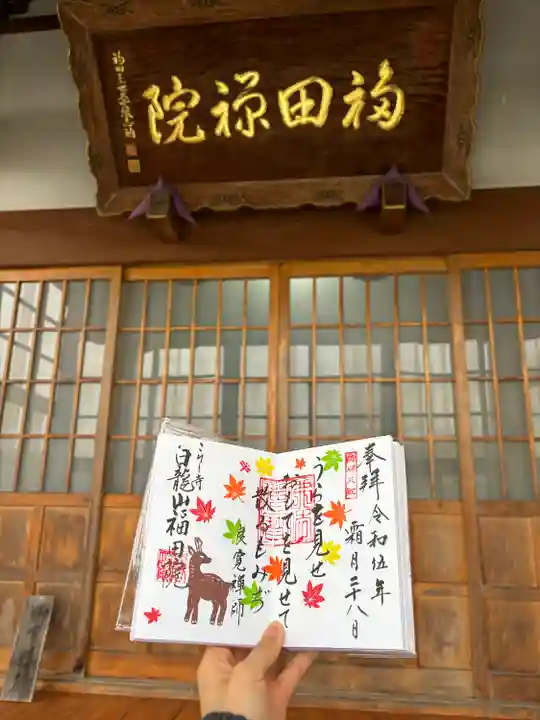 福田禅院
奉拝 令和伍年
霜月二十八日
うらを見せ
おもてを見せて
散るもみぢ
良寛禅師
白龍山 福田院